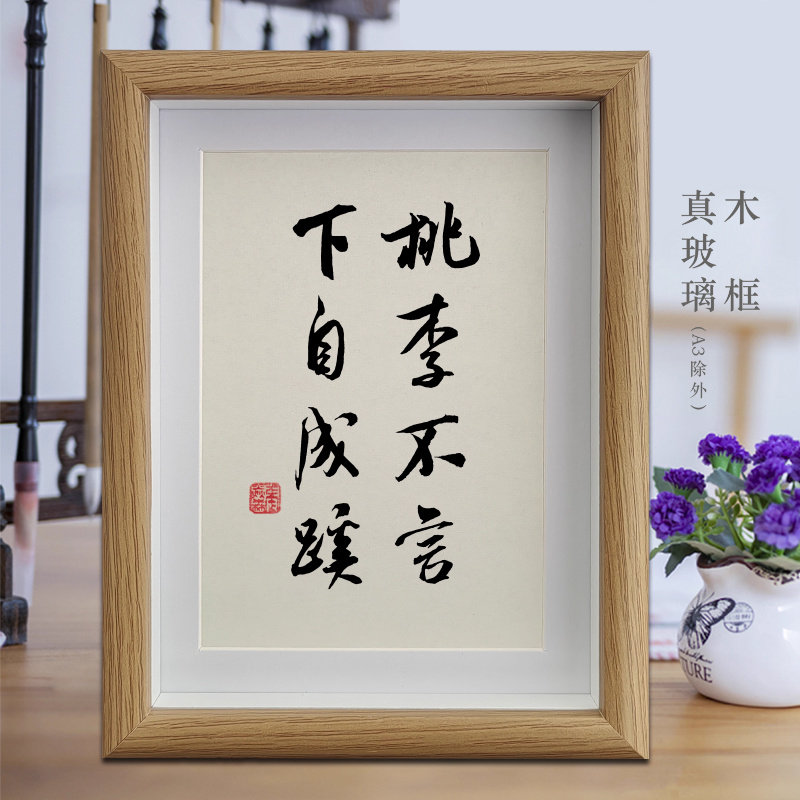 桃李不言
下自成蹊
木框
真玻璃
(A3除外)
TURE